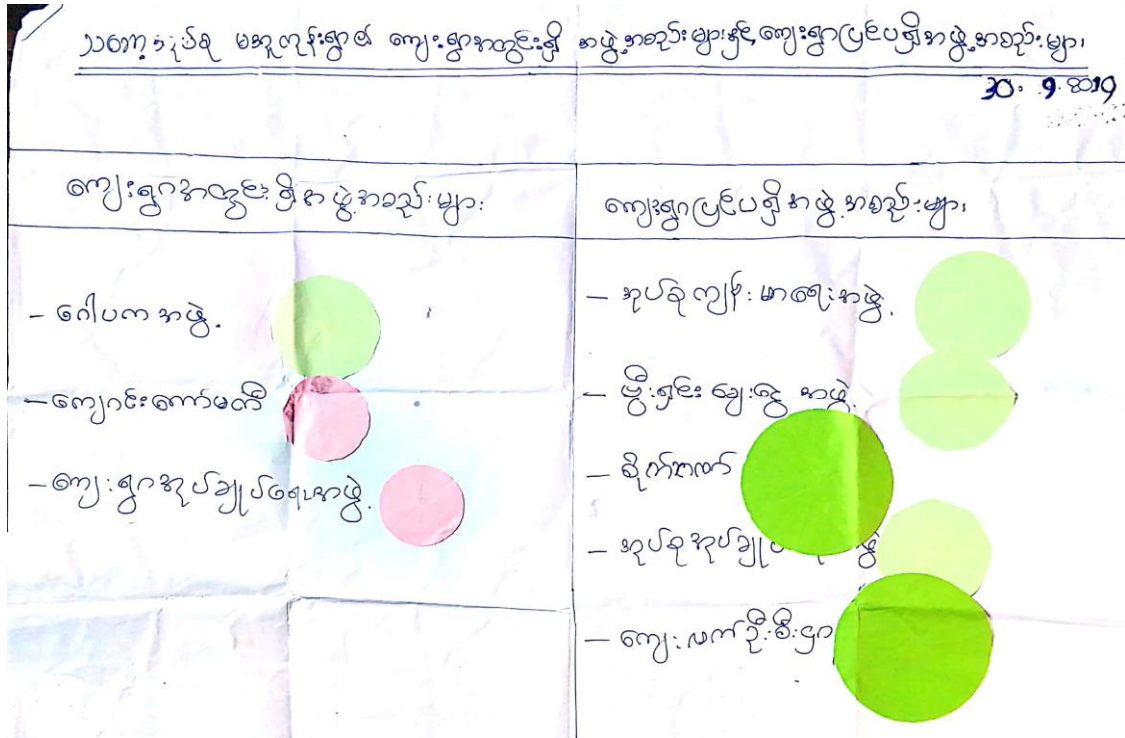 အုပ်စု မအူကုန်းရွာ၏ ကျေးရွာအတွင်းရှိ အဖွဲ့အစည်းများနှင့် ကျေးရွာပြင်ပရှိအဖွဲ့အစည်းများ
30. 9. 2019
ကျေးရွာအတွင်းရှိအဖွဲ့အစည်းများ
- ဂေါပကအဖွဲ့
- ကျောင်းကော်မတီ
- ကျေးရွာအုပ်ချုပ်ရေးအဖွဲ့
ကျေးရွာပြင်ပရှိအဖွဲ့အစည်းများ
- အုပ်စုကျန်းမာရေးအဖွဲ့
- မြီးရှင်း ချေးငွေ အဖွဲ့
- စိုက်ဘဏ်
- အုပ်စုအုပ်ချုပ် ဖွဲ့
- ကျေးလက်ဦးစီးဌာ